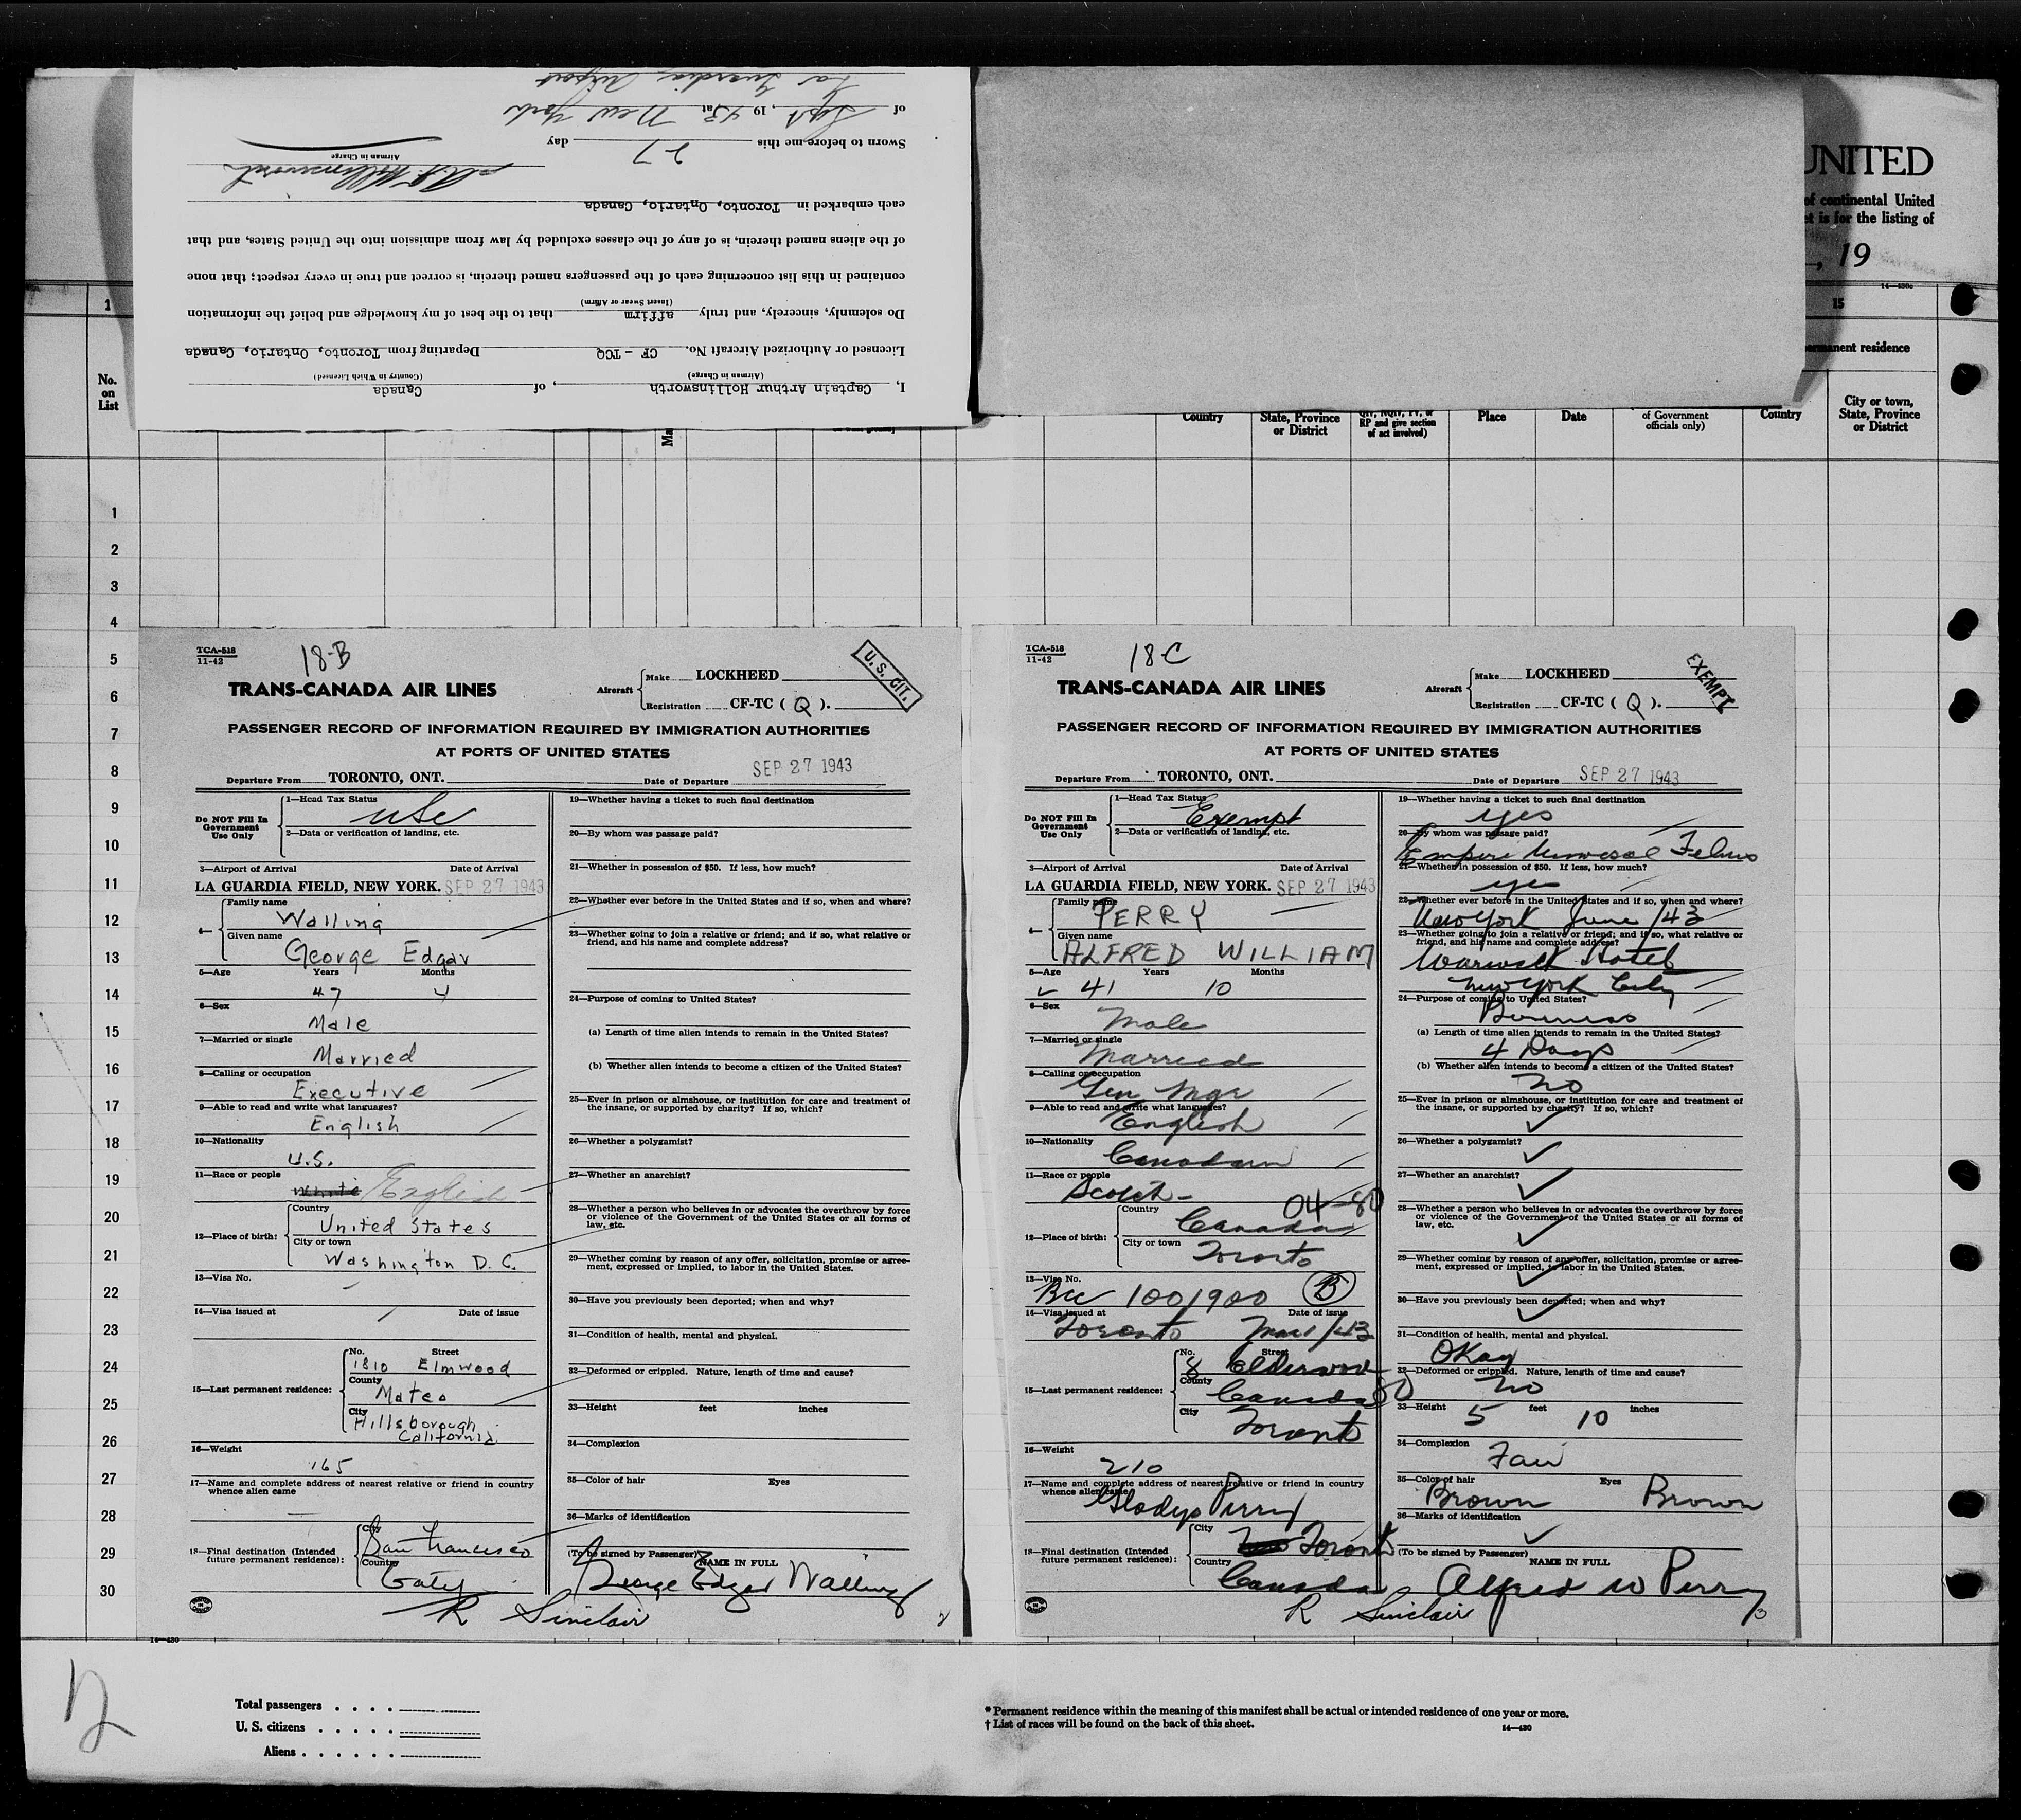 I, Captain Arthur Hollinsworth, of Canada
(Airman in Charge) (Country in Which Licensed)
Licensed or Authorized Aircraft No. CF - TCQ Departing from Toronto, Ontario, Canada
Do solemnly, sincerely, and truly affirm that to the best of my knowledge and belief the information
(Insert Swear or Affirm)
contained in this list concerning each of the passengers named therein, is correct and true in every respect; that none
of the aliens named therein, is of any of the classes excluded by law from admission into the United States, and that
each embarked in Toronto, Ontario, Canada
Airman in Charge
Sworn to before me this 27 day
of Sept, 19 43 at New York
La Guardia Airport
UNITED
of continental United
is for the listing of
, 19
14—430c
1
15
permanent residence
No.
on
List
Country
State, Province
or District
QIV, NQIV, PV, or
RP and give section
of act involved)
Place
Date
of Government
officials only)
Country
City or town,
State, Province
or District
1
2
3
4
5
6
7
8
9
10
11
12
13
14
15
16
17
18
19
20
21
22
23
24
25
26
27
28
29
30
TCA-518
11-42
18-B
U. S. CIT.
TRANS-CANADA AIR LINES
Aircraft
Make LOCKHEED
Registration CF-TC ( Q ).
PASSENGER RECORD OF INFORMATION REQUIRED BY IMMIGRATION AUTHORITIES
AT PORTS OF UNITED STATES
Departure From TORONTO, ONT. Date of Departure SEP 27 1943
Do NOT Fill In
Government
Use Only
1—Head Tax Status
USC
2—Data or verification of landing, etc.
3—Airport of Arrival Date of Arrival
LA GUARDIA FIELD, NEW YORK. SEP 27 1943
4—
Family name
Walling
Given name
George Edgar
5—Age Years Months
47 4
6—Sex
Male
7—Married or single
Married
8—Calling or occupation
Executive
9—Able to read and write what languages?
English
10—Nationality
U.S.
11—Race or people
White English
12—Place of birth:
Country
United States
City or town
Washington D.C.
13—Visa No.
14—Visa issued at Date of issue
15—Last permanent residence:
No. Street
1810 Elmwood
County
Mateo
City
Hillsborough
California
16—Weight
165
17—Name and complete address of nearest relative or friend in country
whence alien came
18—Final destination (Intended
future permanent residence):
City
San Francisco
Country
19—Whether having a ticket to such final destination
20—By whom was passage paid?
21—Whether in possession of $50. If less, how much?
22—Whether ever before in the United States and if so, when and where?
23—Whether going to join a relative or friend; and if so, what relative or
friend, and his name and complete address?
24—Purpose of coming to United States?
(a) Length of time alien intends to remain in the United States?
(b) Whether alien intends to become a citizen of the United States?
25—Ever in prison or almshouse, or institution for care and treatment of
the insane, or supported by charity? If so, which?
26—Whether a polygamist?
27—Whether an anarchist?
28—Whether a person who believes in or advocates the overthrow by force
or violence of the Government of the United States or all forms of
law, etc.
29—Whether coming by reason of any offer, solicitation, promise or agree-
ment, expressed or implied, to labor in the United States.
30—Have you previously been deported; when and why?
31—Condition of health, mental and physical.
32—Deformed or crippled. Nature, length of time and cause?
33—Height feet inches
34—Complexion
35—Color of hair Eyes
36—Marks of identification
(To be signed by Passenger) NAME IN FULL
George Edgar Walling
R Sinclair
2
TCA-518
11-42
18-C
EXEMPT
TRANS-CANADA AIR LINES
Aircraft
Make LOCKHEED
Registration CF-TC ( Q ).
PASSENGER RECORD OF INFORMATION REQUIRED BY IMMIGRATION AUTHORITIES
AT PORTS OF UNITED STATES
Departure From TORONTO, ONT. Date of Departure SEP 27 1943
Do NOT Fill In
Government
Use Only
1—Head Tax Status
Exempt
2—Data or verification of landing, etc.
3—Airport of Arrival Date of Arrival
LA GUARDIA FIELD, NEW YORK. SEP 27 1943
4—
Family name
PERRY
Given name
ALFRED WILLIAM
5—Age Years Months
41 10
6—Sex
Male
7—Married or single
Married
8—Calling or occupation
Gen Mgr
9—Able to read and write what languages?
English
10—Nationality
Canadian
11—Race or people
Scotch - 04-80
12—Place of birth:
Country
Canada
City or town
Toronto
13—Visa No.
Bcc 100/900 B
14—Visa issued at Date of issue
Toronto Mar 1/43
15—Last permanent residence:
No. Street
8 Elderwood
County
Canada 80
City
Toronto
16—Weight
210
17—Name and complete address of nearest relative or friend in country
whence alien came
Gladys Perry
18—Final destination (Intended
future permanent residence):
City
Toronto
Country
Canada
19—Whether having a ticket to such final destination
yes
20—By whom was passage paid?
Empire Universal Films
21—Whether in possession of $50. If less, how much?
yes
22—Whether ever before in the United States and if so, when and where?
New York June/43
23—Whether going to join a relative or friend; and if so, what relative or
friend, and his name and complete address?
Warwick Hotel
New York City
24—Purpose of coming to United States?
Business
(a) Length of time alien intends to remain in the United States?
4 Days
(b) Whether alien intends to become a citizen of the United States?
no
25—Ever in prison or almshouse, or institution for care and treatment of
the insane, or supported by charity? If so, which?
26—Whether a polygamist?
27—Whether an anarchist?
28—Whether a person who believes in or advocates the overthrow by force
or violence of the Government of the United States or all forms of
law, etc.
29—Whether coming by reason of any offer, solicitation, promise or agree-
ment, expressed or implied, to labor in the United States.
30—Have you previously been deported; when and why?
31—Condition of health, mental and physical.
Okay
32—Deformed or crippled. Nature, length of time and cause?
no
33—Height 5 feet 10 inches
34—Complexion
Fair
35—Color of hair Eyes
Brown Brown
36—Marks of identification
(To be signed by Passenger) NAME IN FULL
Alfred W Perry
R Sinclair
3
14—430
12
Total passengers
U. S. citizens
Aliens
* Permanent residence within the meaning of this manifest shall be actual or intended residence of one year or more.
† List of races will be found on the back of this sheet.
14—430